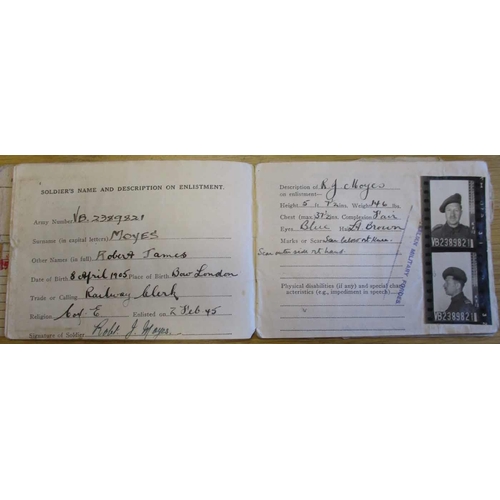 SOLDIER'S NAME AND DESCRIPTION ON ENLISTMENT.
Army Number VB.2389821
Surname (in capital letters) MOYES
Other Names (in full) Robert James
Date of Birth 8 April 1905 Place of Birth Bow London
Trade or Calling Railway Clerk
Religion C of E Enlisted on 2 Feb 45
Signature of Soldier Robt J. Moyes.
Description of R J Moyes
on enlistment
Height 5 ft. 7 ins. Weight 146 lbs.
Chest (max) 37 ins. Complexion Fair
Eyes Blue Hair Lt Brown
Marks or Scars Scar below rt knee.
Scar outside rt hand.
Physical disabilities (if any) and special char-
acteristics (e.g., impediment in speech)
MILITARY
VB2389821
VB2389821